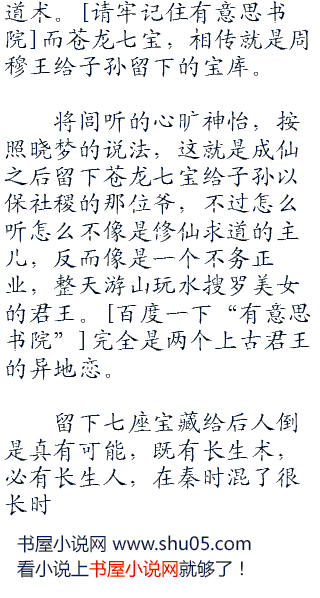 道术。[请牢记住有意思书
院]而苍龙七宝，相传就是周
穆王给子孙留下的宝库。
将闾听的心旷神怡，按
照晓梦的说法，这就是成仙
之后留下苍龙七宝给子孙以
保社稷的那位爷，不过怎么
听怎么不像是修仙求道的主
儿，反而像是一个不务正
业，整天游山玩水搜罗美女
的君王。[百度一下“有意思
书院”]完全是两个上古君王
的异地恋。
留下七座宝藏给后人倒
是真有可能，既有长生术，
必有长生人，在秦时混了很
长时
书屋小说网 www.shu05.com
看小说上书屋小说网就够了！